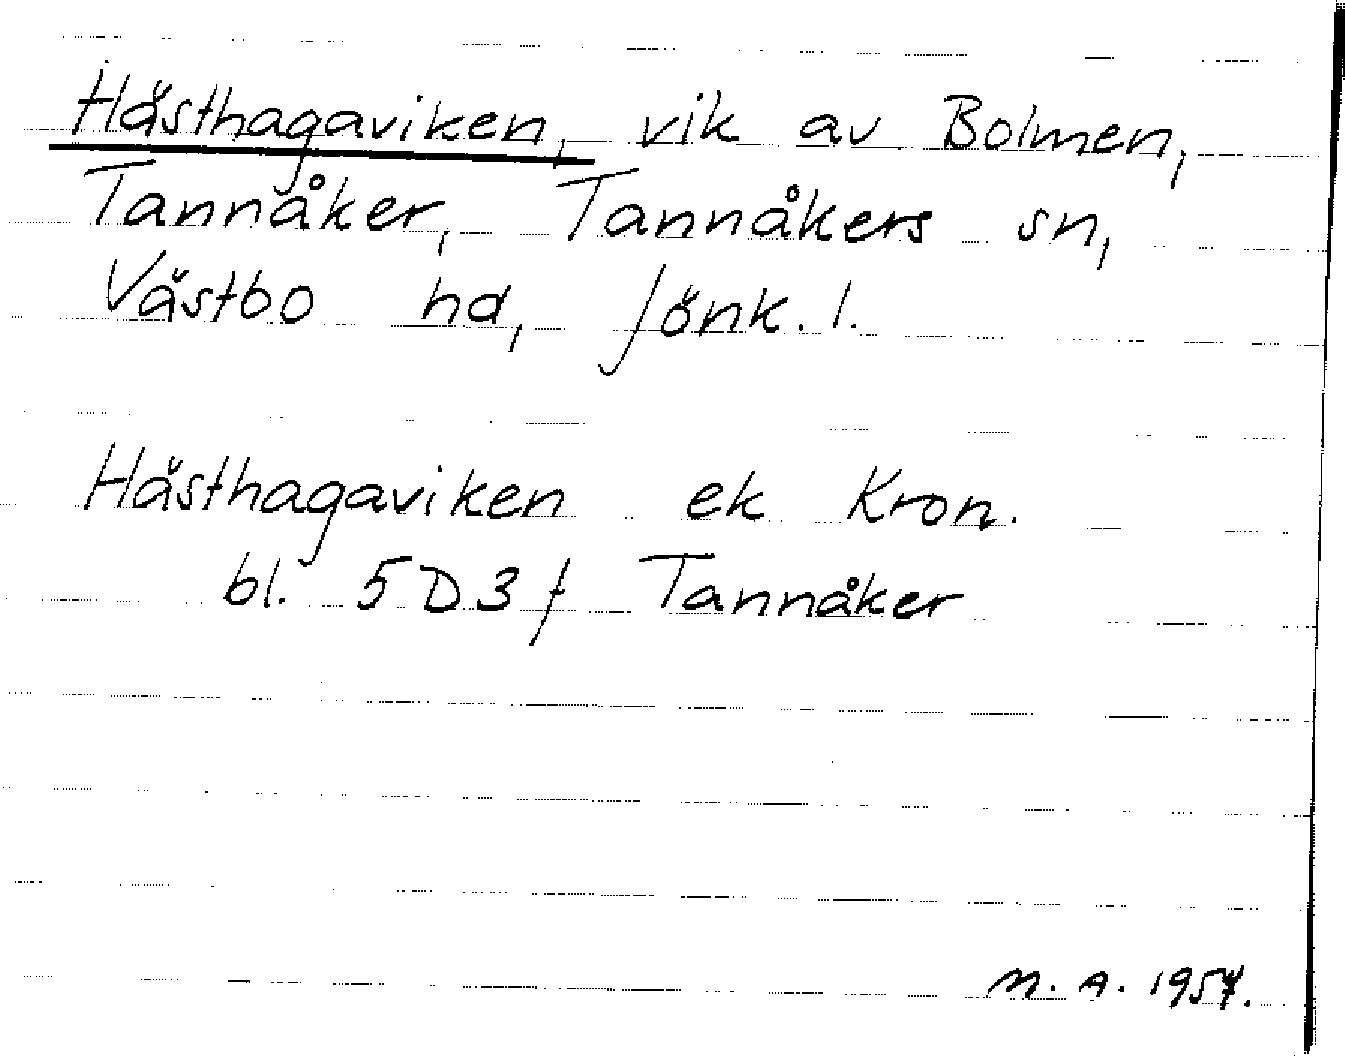 Hästhagaviken, vik av Bolmen,
Tannåker, Tannåkers sn,
Västbo hd, Jönk. l.
Hästhagaviken ek Kron.
bl. 5D3f Tannåker
M. A. 1957.